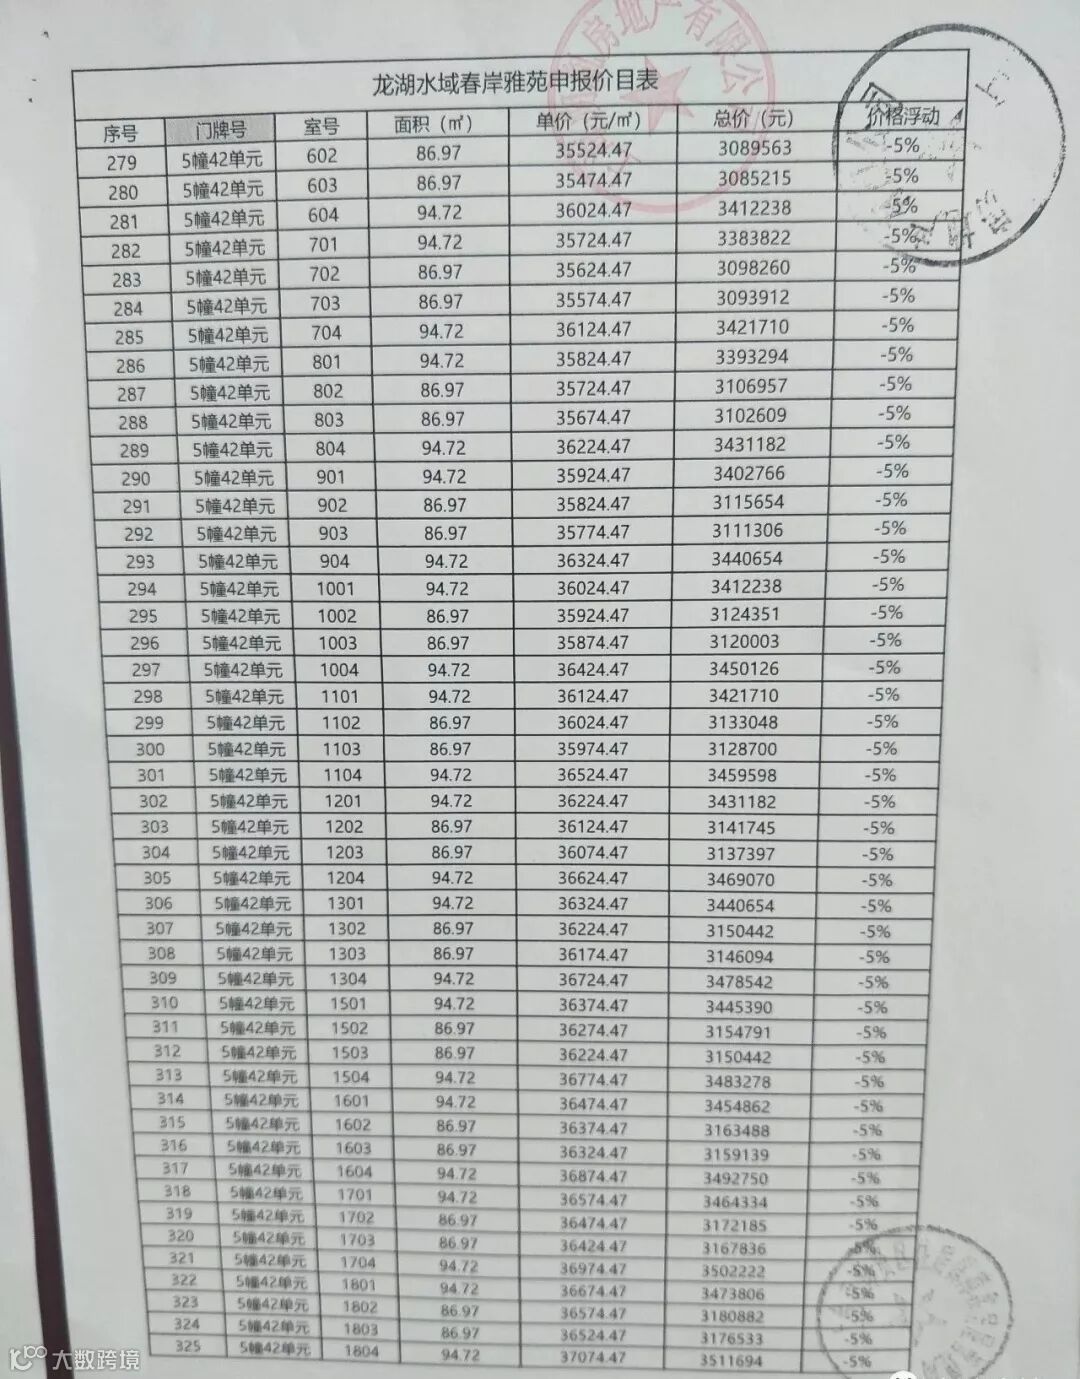 房地产有限公
龙湖水域春岸雅苑申报价目表
序号 门牌号 室号 面积（㎡） 单价（元/㎡） 总价（元） 价格浮动
279 5幢42单元 602 86.97 35524.47 3089563 -5%
280 5幢42单元 603 86.97 35474.47 3085215 -5%
281 5幢42单元 604 94.72 36024.47 3412238 -5%
282 5幢42单元 701 94.72 35724.47 3383822 -5%
283 5幢42单元 702 86.97 35624.47 3098260 -5%
284 5幢42单元 703 86.97 35574.47 3093912 -5%
285 5幢42单元 704 94.72 36124.47 3421710 -5%
286 5幢42单元 801 94.72 35824.47 3393294 -5%
287 5幢42单元 802 86.97 35724.47 3106957 -5%
288 5幢42单元 803 86.97 35674.47 3102609 -5%
289 5幢42单元 804 94.72 36224.47 3431182 -5%
290 5幢42单元 901 94.72 35924.47 3402766 -5%
291 5幢42单元 902 86.97 35824.47 3115654 -5%
292 5幢42单元 903 86.97 35774.47 3111306 -5%
293 5幢42单元 904 94.72 36324.47 3440654 -5%
294 5幢42单元 1001 94.72 36024.47 3412238 -5%
295 5幢42单元 1002 86.97 35924.47 3124351 -5%
296 5幢42单元 1003 86.97 35874.47 3120003 -5%
297 5幢42单元 1004 94.72 36424.47 3450126 -5%
298 5幢42单元 1101 94.72 36124.47 3421710 -5%
299 5幢42单元 1102 86.97 36024.47 3133048 -5%
300 5幢42单元 1103 86.97 35974.47 3128700 -5%
301 5幢42单元 1104 94.72 36524.47 3459598 -5%
302 5幢42单元 1201 94.72 36224.47 3431182 -5%
303 5幢42单元 1202 86.97 36124.47 3141745 -5%
304 5幢42单元 1203 86.97 36074.47 3137397 -5%
305 5幢42单元 1204 94.72 36624.47 3469070 -5%
306 5幢42单元 1301 94.72 36324.47 3440654 -5%
307 5幢42单元 1302 86.97 36224.47 3150442 -5%
308 5幢42单元 1303 86.97 36174.47 3146094 -5%
309 5幢42单元 1304 94.72 36724.47 3478542 -5%
310 5幢42单元 1501 94.72 36374.47 3445390 -5%
311 5幢42单元 1502 86.97 36274.47 3154791 -5%
312 5幢42单元 1503 86.97 36224.47 3150442 -5%
313 5幢42单元 1504 94.72 36774.47 3483278 -5%
314 5幢42单元 1601 94.72 36474.47 3454862 -5%
315 5幢42单元 1602 86.97 36374.47 3163488 -5%
316 5幢42单元 1603 86.97 36324.47 3159139 -5%
317 5幢42单元 1604 94.72 36874.47 3492750 -5%
318 5幢42单元 1701 94.72 36574.47 3464334 -5%
319 5幢42单元 1702 86.97 36474.47 3172185 -5%
320 5幢42单元 1703 86.97 36424.47 3167836 -5%
321 5幢42单元 1704 94.72 36974.47 3502222 -5%
322 5幢42单元 1801 94.72 36674.47 3473806 -5%
323 5幢42单元 1802 86.97 36574.47 3180882 -5%
324 5幢42单元 1803 86.97 36524.47 3176533 -5%
325 5幢42单元 1804 94.72 37074.47 3511694 -5%
大数跨境